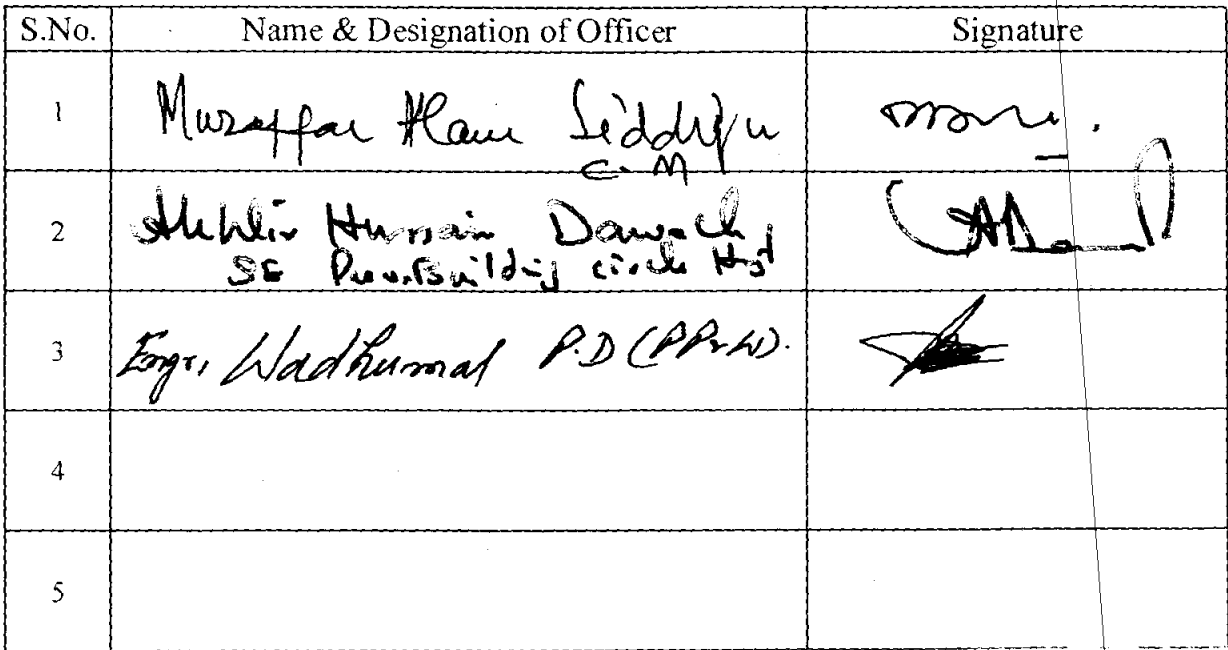 S.No. Name & Designation of Officer Signature
1 Muzaffar Alam Siddiqu
C.M
2 Hussain Dawach
SE Prov. Building circle Hyd
3 Engr, Wadhumal P.D
4
5